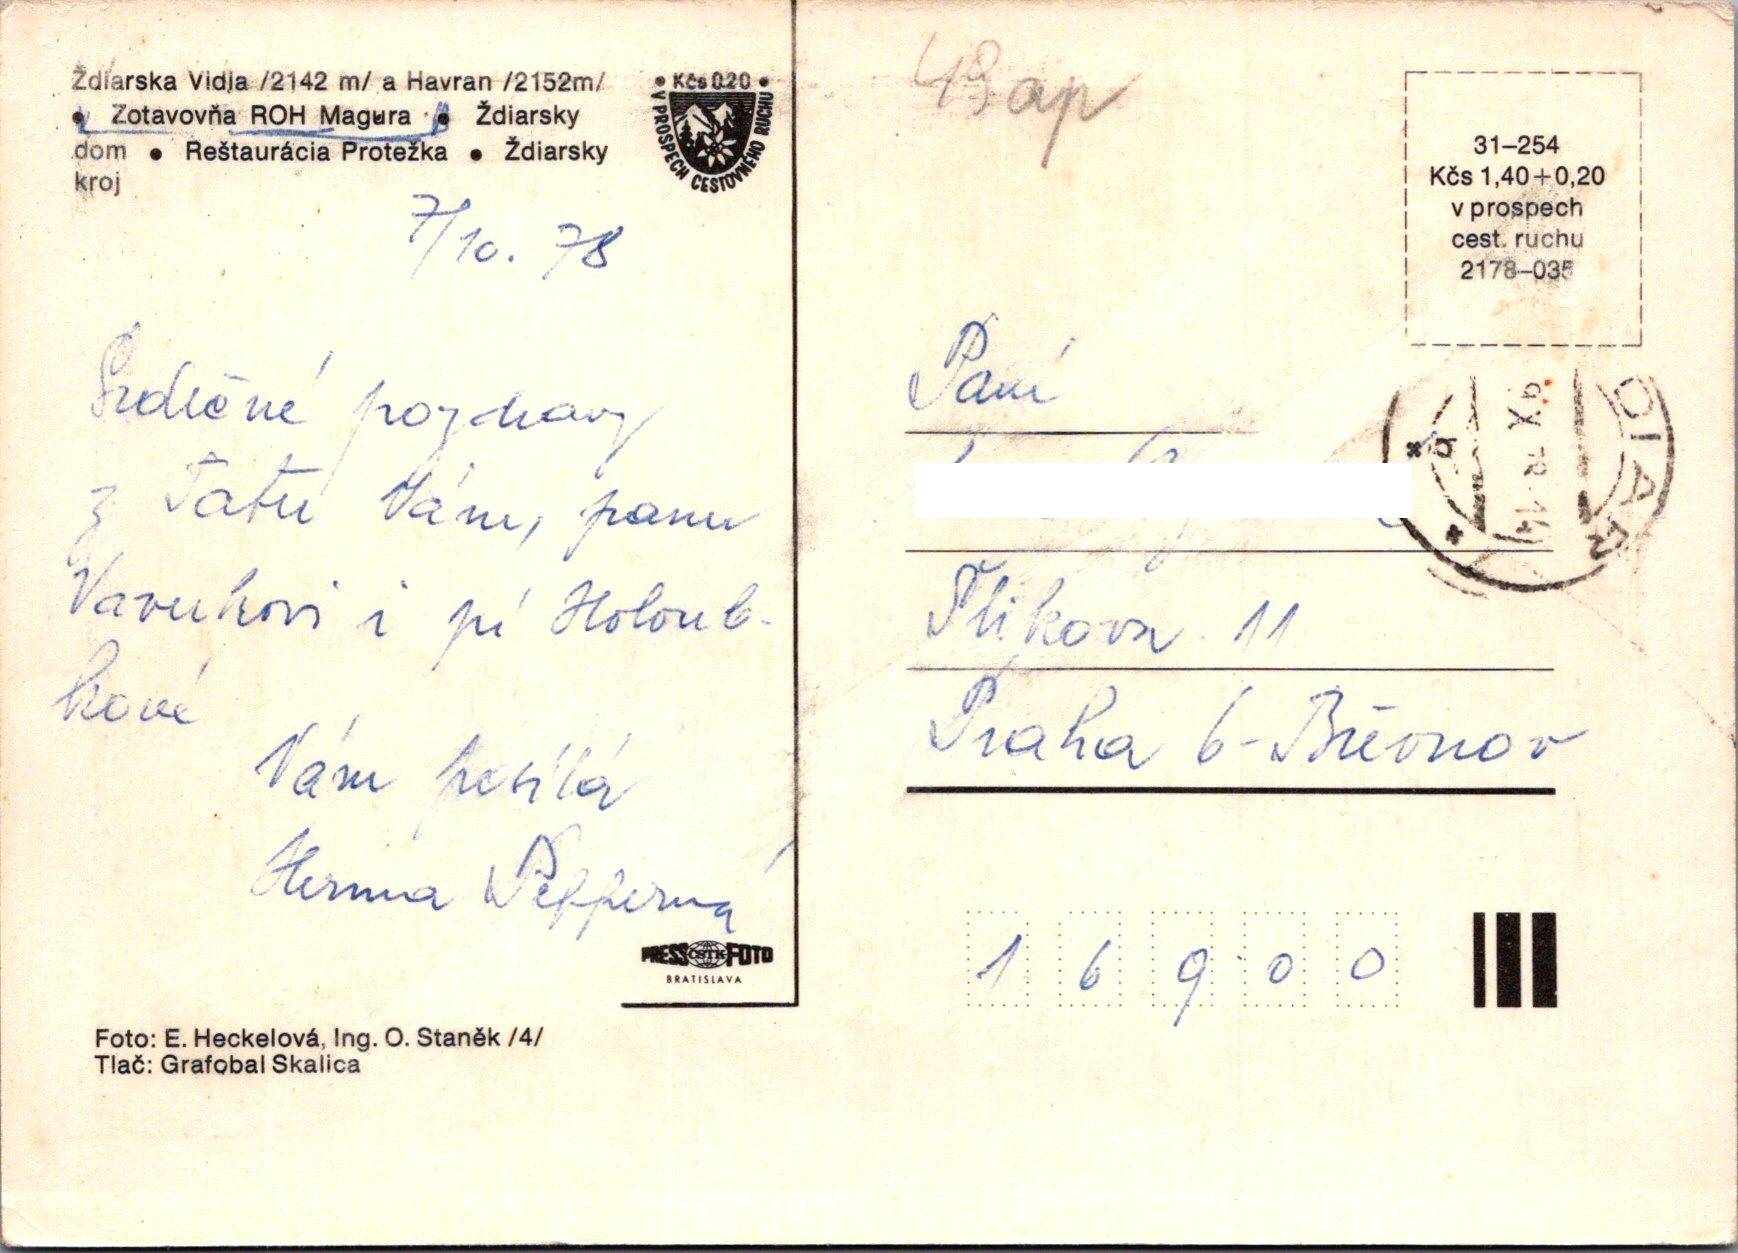 Ždiarska Vidla /2142 m/ a Havran /2152m/
● Zotavovňa ROH Magura ● Ždiarsky
dom ● Reštaurácia Protežka ● Ždiarsky
kroj
Kčs 0.20
V PROSPECH CESTOVNÉHO RUCHU
7/10. 78
Srdečné pozdravy
z Tater Vám, panu
Vavrukovi i pí Holoub-
kové
Vám posílá
Herma Pepperná
PRESS ČSTK FOTO
BRATISLAVA
Foto: E. Heckelová, Ing. O. Staněk /4/
Tlač: Grafobal Skalica
48 ap
31–254
Kčs 1,40+0,20
v prospech
cest. ruchu
2178–035
DIAR
9.X.78-14
b
Paní
11
Praha 6-Břevnov
1 6 9 0 0